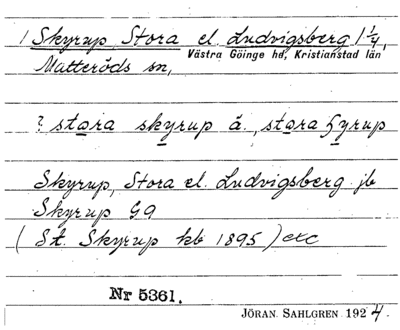 1 Skyrup, Stora el. Ludvigsberg 1 1/4,
Västra Göinge hd, Kristianstad län
Matteröds sn,
? stɑra skyrup å., stɑra ɧyrup
Skyrup, Stora el. Ludvigsberg jb
Skyrup G9
(St. Skyrup kb 1895) etc
Nr 5361.
JÖRAN SAHLGREN 1924.